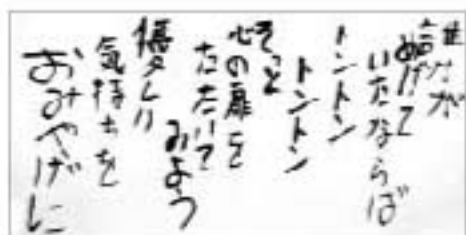 誰かが
めげて
いたならば
トントン
トントン
そっと
心の扉を
たたいて
みよう
優しい
気持ちを
おみやげに